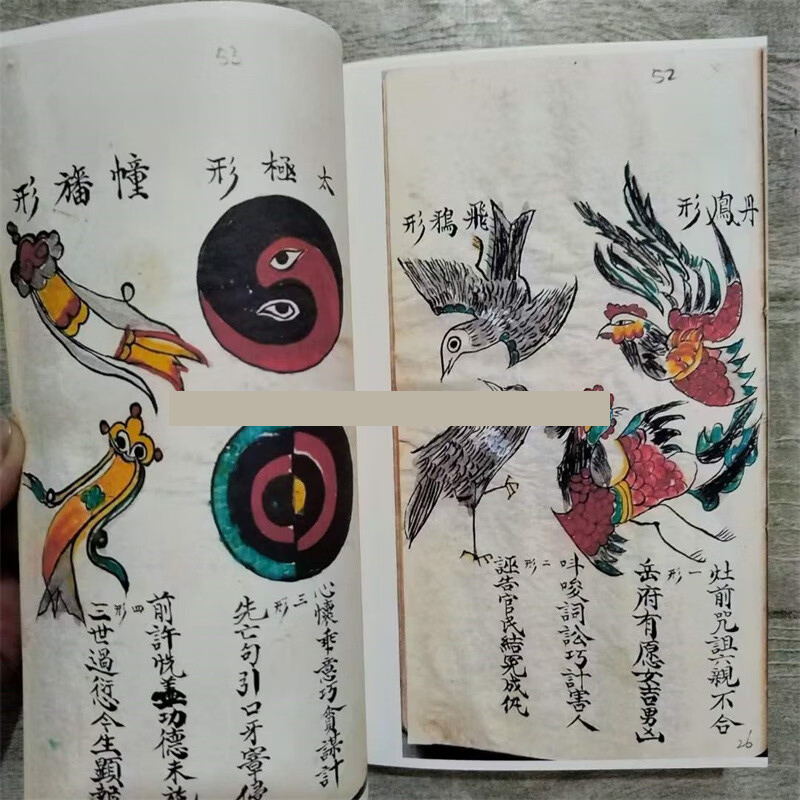 52
丹鳳形
飛鵶形
灶前咒詛六親不合
一形
岳府有愿女吉男凶
呌唆詞訟巧計害人
二形
誣告官民結冤成仇
26
53
太極形
幢旛形
心懷乖意巧貪謀計
三形
先亡句引口牙
四形
前許功德未
三世過愆今生顯報